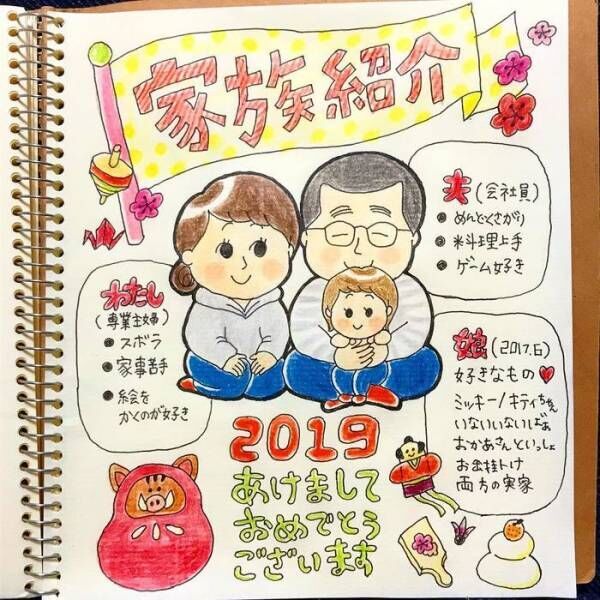 家族紹介
夫(会社員)
● めんどくさがり
● 料理上手
● ゲーム好き
わたし
(専業主婦)
● ズボラ
● 家事苦手
● 絵を
かくのが好き
娘(2017.6)
好きなもの♥
ミッキー/キティちゃん
いないいないばぁ
おかあさんといっしょ
お金掛け
両方の実家
2019
あけまして
おめでとう
ございます